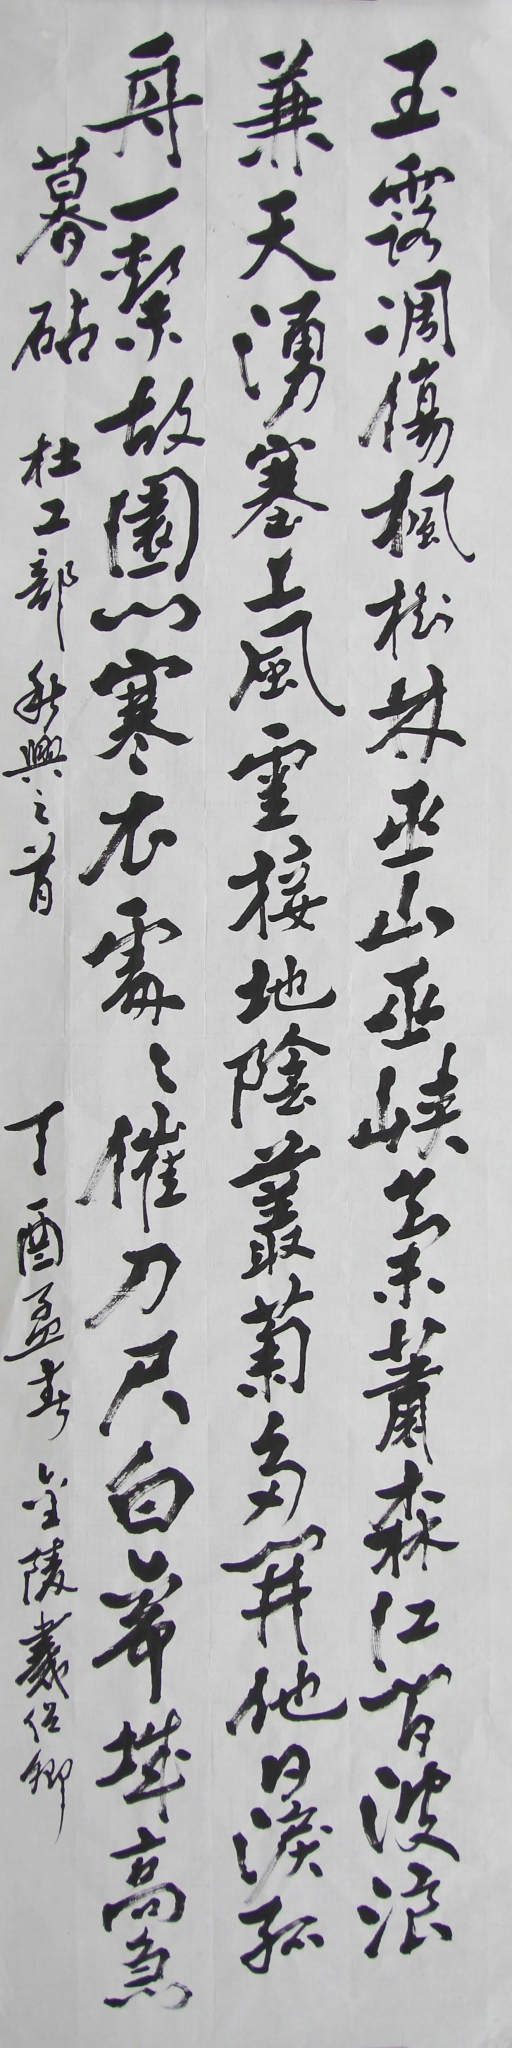 玉露凋傷楓樹林巫山巫峽氣蕭森江間波浪
兼天湧塞上風雲接地陰叢菊兩開他日淚孤
舟一繫故園心寒衣處々催刀尺白帝城高急
暮砧 杜工部秋興之首 丁酉孟春 金陵戴卿